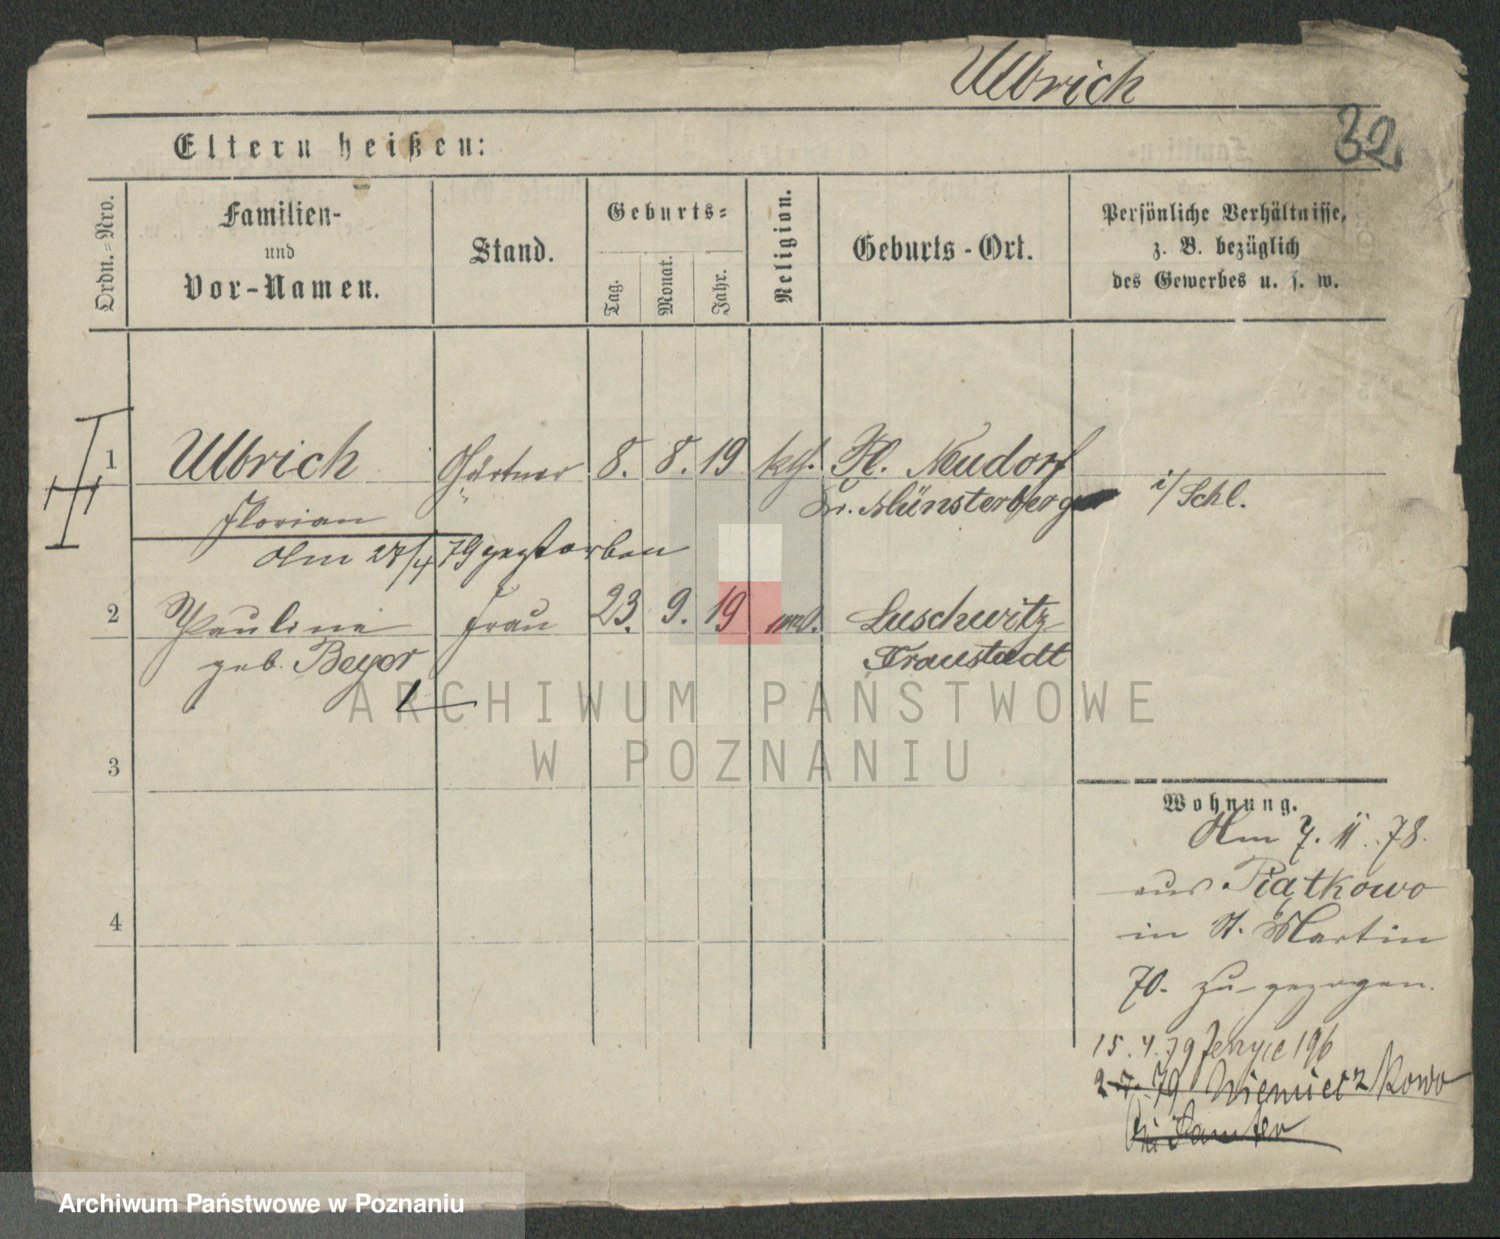 Ulbrich
32
Eltern heißen:
Ordn.-Nro.
Familien-
und
Vor-Namen.
Stand.
Geburts-
Tag.
Monat.
Jahr.
Religion.
Geburts-Ort.
Persönliche Verhältnisse,
z. B. bezüglich
des Gewerbes u. s. w.
1 Ulbrich Gärtner 8. 8. 19 kth. Kl. Neudorf
Florian Kr. Münsterberg i/Schl.
Am 28/4 79 gestorben
2 Pauline Frau 23. 9. 19 Luschwitz
geb. Beyer Fraustadt
ARCHIWUM PAŃSTWOWE
W POZNANIU
3
Wohnung.
Am 7. 11. 78.
aus Piątkowo
in St. Martin
4
70. zugezogen.
15. 4. 79 Jerzyce 196
79 Niemieczkowo
bei Samter
Archiwum Państwowe w Poznaniu